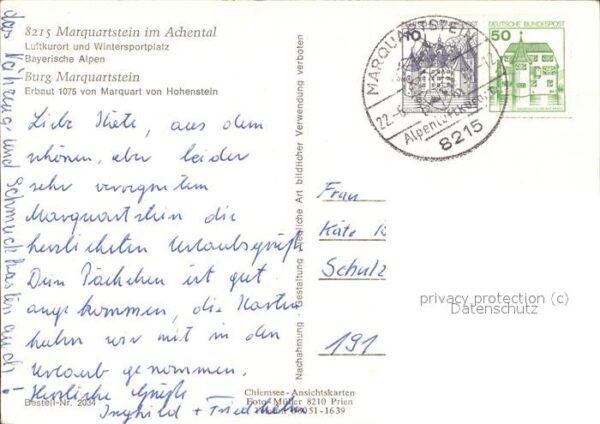 8215 Marquartstein im Achental
Luftkurort und Wintersportplatz
Bayerische Alpen
Burg Marquartstein
Erbaut 1075 von Marquart von Hohenstein
Liebe Käte, aus dem
schönen, aber leider
sehr verregneten
Marquartstein die
herzlichsten Urlaubsgrüße
Dein Päckchen ist gut
angekommen, die Karten
haben wir mit in den
Urlaub genommen.
Herzliche Grüße
Inghild + Friedhelm
und Schmuckkasten auch!
Bestell-Nr. 2034
Nachahmung - Gestaltung jegliche Art bildlicher Verwendung verboten
Chiemsee-Ansichtskarten
Foto-Müller 8210 Prien
Telefon 08051-1639
MARQUARTSTEIN
22.-6.
8215
10
DEUTSCHE BUNDESPOST
50
Frau
Käte
Schulz
191
privacy protection (c)
Datenschutz